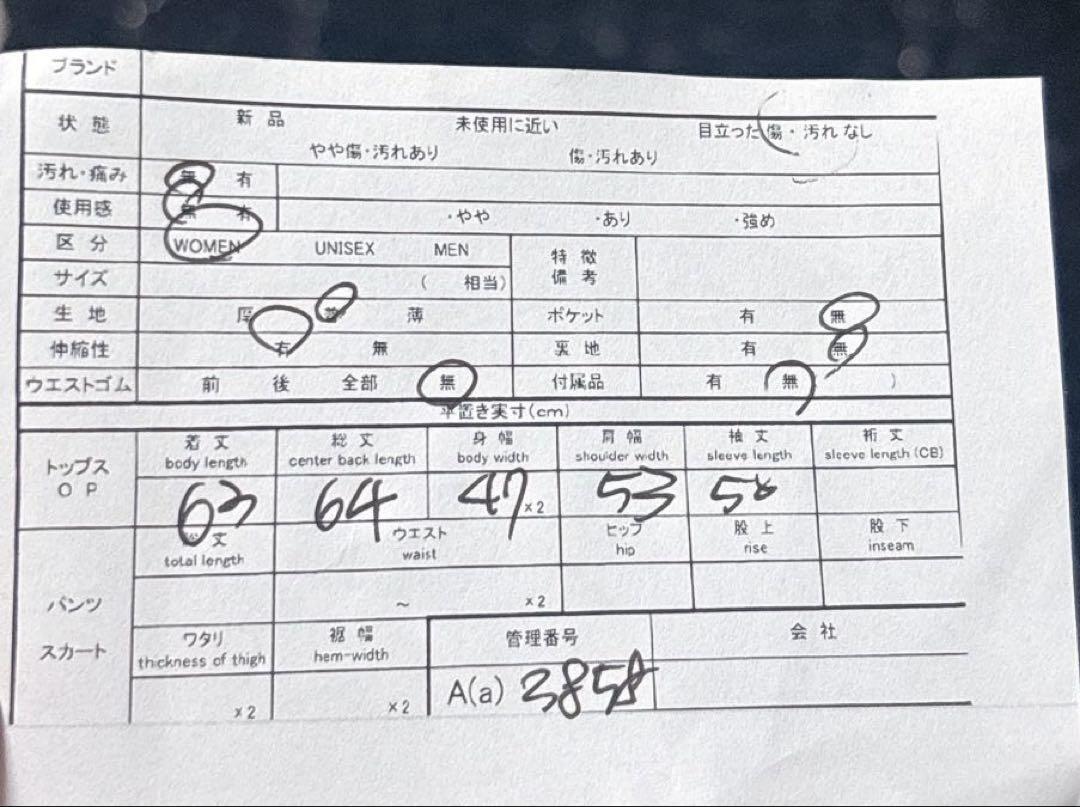 ブランド
状態 新品 未使用に近い 目立った傷・汚れなし
やや傷・汚れあり 傷・汚れあり
汚れ・痛み 無 有
使用感 無 有 ・やや ・あり ・強め
区分 WOMEN UNISEX MEN 特徴備考
サイズ ( 相当)
生地 厚 普 薄 ポケット 有 無
伸縮性 有 無 裏地 有 無
ウエストゴム 前 後 全部 無 付属品 有 無 )
平置き実寸(cm)
着丈 総丈 身幅 肩幅 袖丈 裄丈
body length center back length body width shoulder width sleeve length sleeve length (CB)
トップス
OP
63 64 47 ×2 53 58
総丈 ウエスト ヒップ 股上 股下
total length waist hip rise inseam
パンツ ~ ×2
スカート
ワタリ 裾幅 管理番号 会社
thickness of thigh hem-width
×2 ×2 A(a) 3858